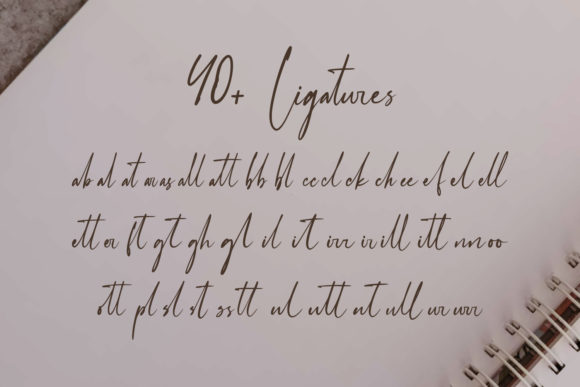 40+ Ligatures
ab al at ar as all att bb bl cc cl ck ch ee ef el ell
ett er ft gt gh gl il it irr ir ill itt nn oo
ott pl sl st ss tt ul utt ut ull ur urr